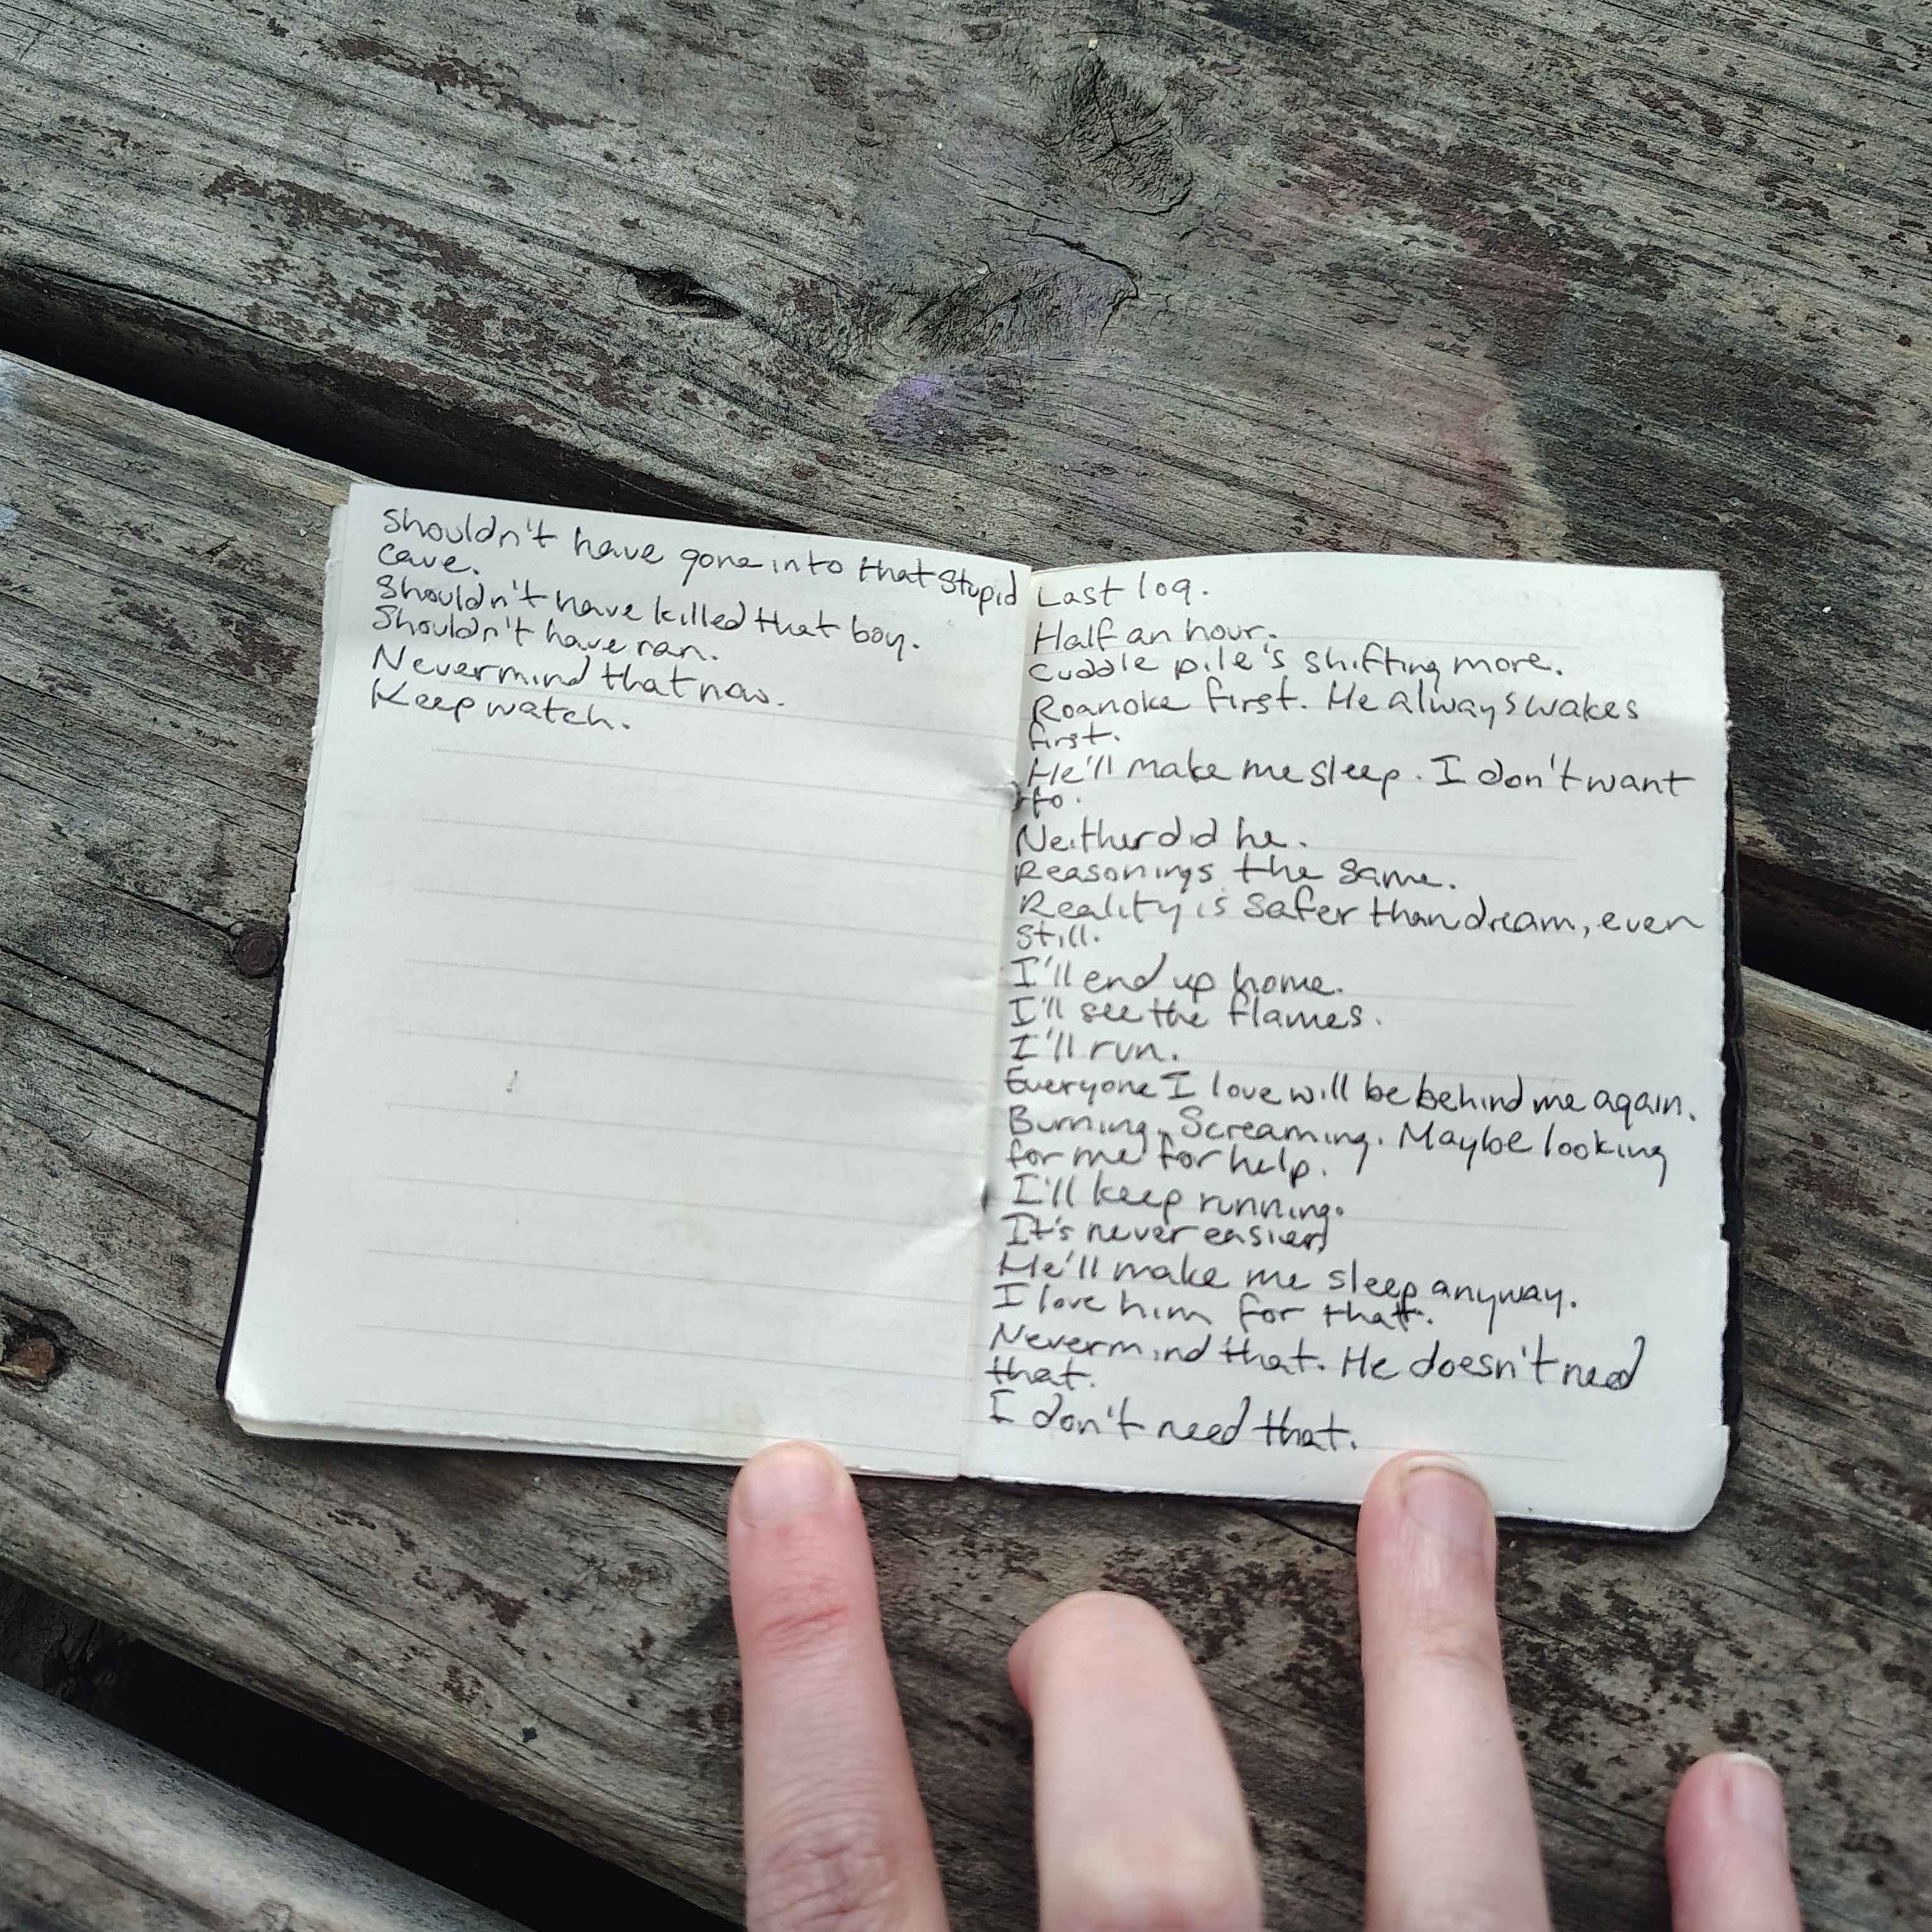 Shouldn't have gone into that stupid
cave.
Shouldn't have killed that boy.
Shouldn't have ran.
Nevermind that now.
Keep watch.
Last log.
Half an hour.
Cuddle pile's shifting more.
Roanoke first. He always wakes
first.
He'll make me sleep. I don't want
to.
Neither did he.
Reasonings the same.
Reality is safer than dream, even
still.
I'll end up home.
I'll see the flames.
I'll run.
Everyone I love will be behind me again.
Burning. Screaming. Maybe looking
for me for help.
I'll keep running.
It's never easier.
He'll make me sleep anyway.
I love him for that.
Nevermind that. He doesn't need
that.
I don't need that.